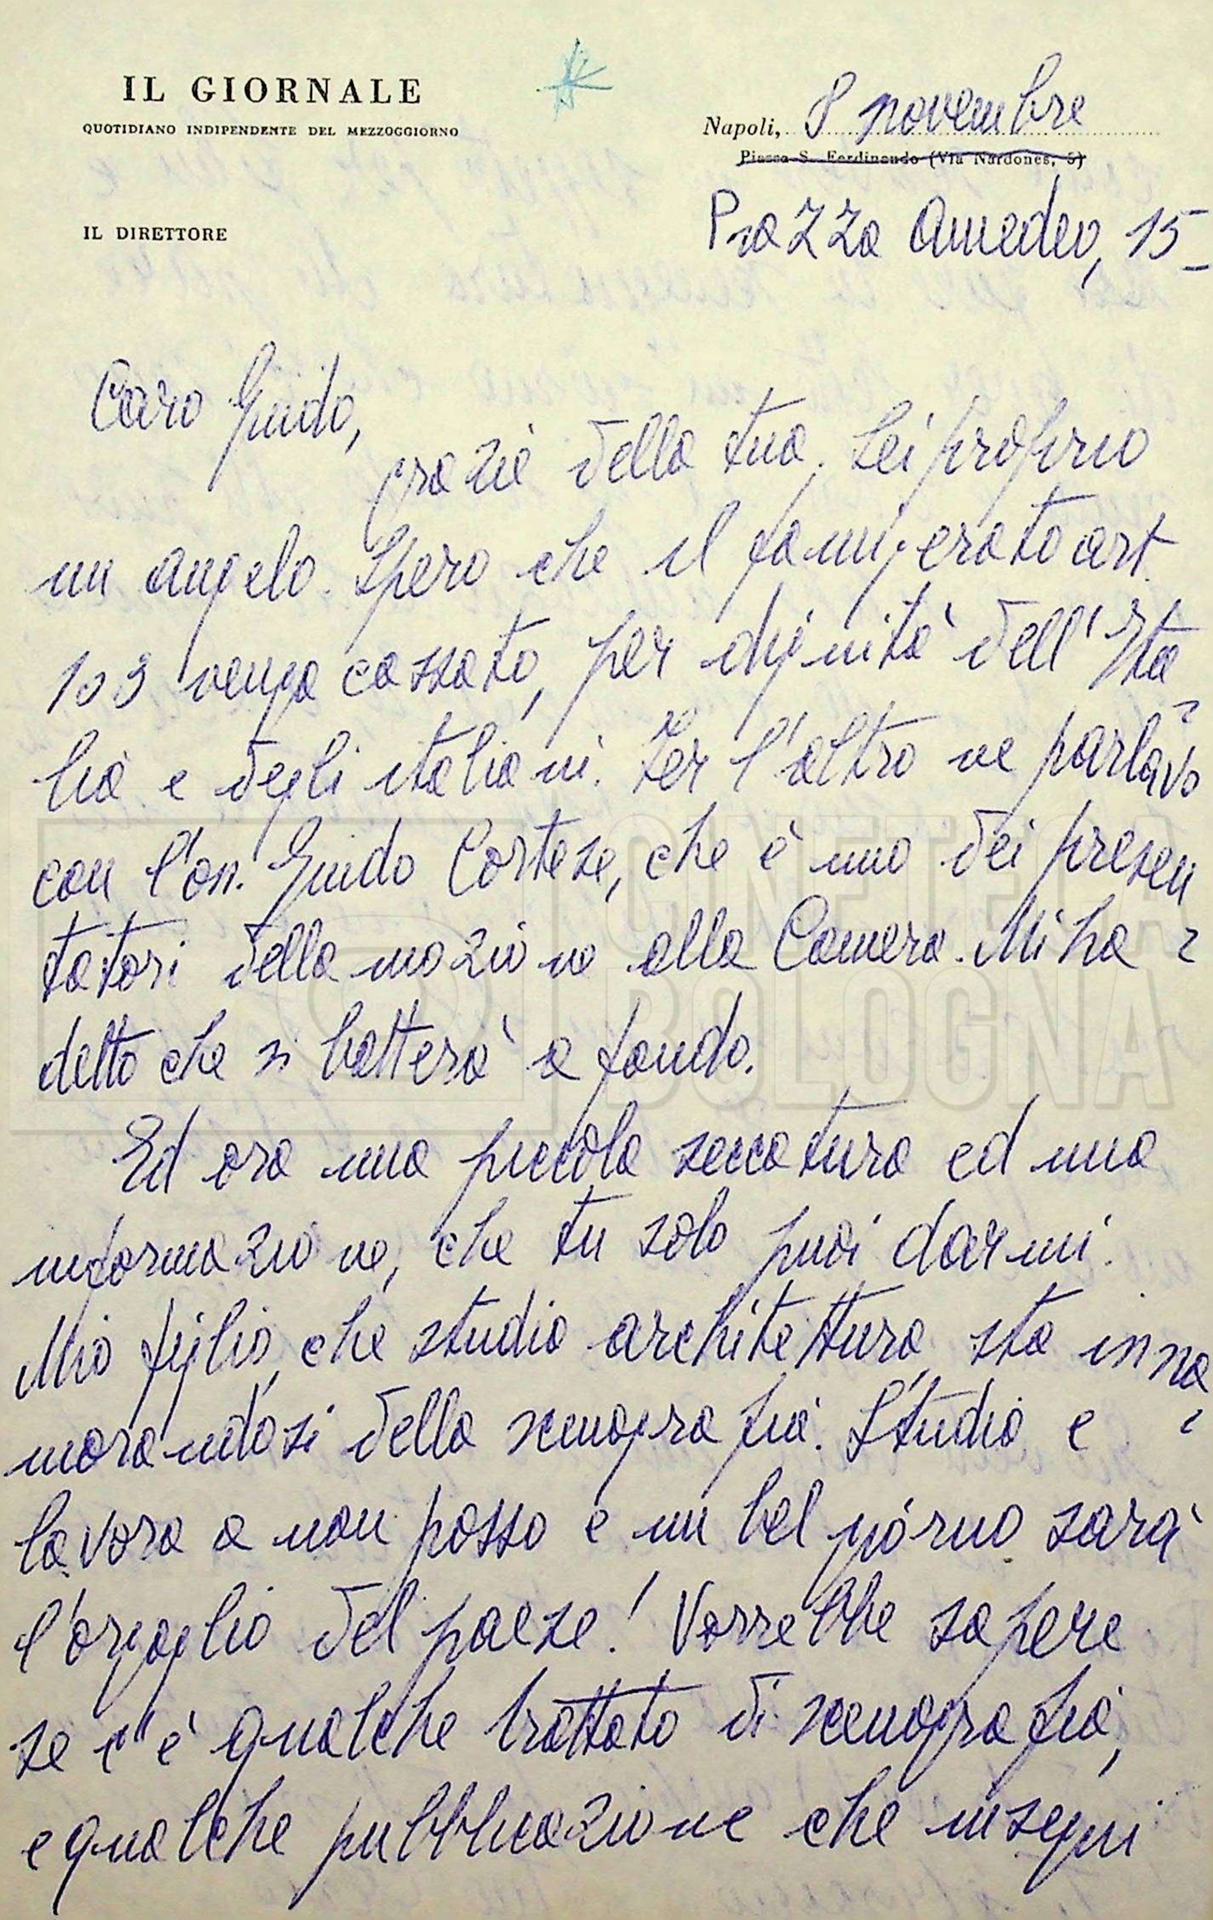 IL GIORNALE
QUOTIDIANO INDIPENDENTE DEL MEZZOGGIORNO
IL DIRETTORE
Napoli, 8 novembre
Piazza S. Ferdinando (Via Nardones, 5)
Piazza Amedeo, 15
Caro Guido,
grazie della tua. Sei proprio
un angelo. Spero che il famigerato art.
103 venga cassato, per dignità dell'Ita
lia e degli italiani. Ier l'altro ne parlavo
con l'on. Guido Cortese, che è uno dei presen
tatori della mozione alla Camera. Mi ha
detto che si batterà a fondo.
Ed ora una piccola seccatura ed una
informazione, che tu solo puoi darmi.
Mio figlio, che studia architettura, sta inna
morandosi della scenografia. Studia e
lavora a non posso e un bel giorno sarà
l'orgoglio del paese! Vorrebbe sapere
se c'è qualche trattato di scenografia,
e qualche pubblicazione che insegni
CINETECA
BOLOGNA